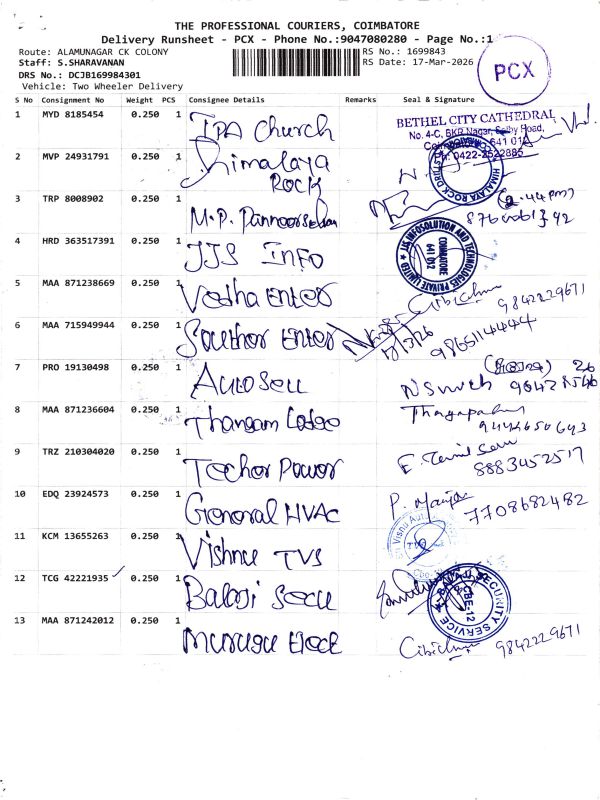 THE PROFESSIONAL COURIERS, COIMBATORE
Delivery Runsheet - PCX - Phone No.:9047080280 - Page No.:1
Route: ALAMUNAGAR CK COLONY
RS No.: 1699843
Staff: S.SHARAVANAN
RS Date: 17-Mar-2026
DRS No.: DCJB169984301
Vehicle: Two Wheeler Delivery
PCX
S No Consignment No Weight PCS Consignee Details Remarks Seal & Signature
1 MYD 8185454 0.250 1 IPA Church
BETHEL CITY CATHEDRAL
No. 4-C, SKR Nagar, Selby Road,
641 012
Ph: 0422-2522885
2 MVP 24931791 0.250 1 Himalaya
Rock
HIMALAYA ROCK
3 TRP 8008902 0.250 1 M.P.
(2.44 pm)
4 HRD 363517391 0.250 1 JJS INFO
INFOSOLUTION AND TECHNOLOGIES PRIVATE LIMITED
COIMBATORE
641 012
5 MAA 871238669 0.250 1 Vedha Enter
9842229671
6 MAA 715949944 0.250 1 Southor Enter
17/3/26
9865114444
7 PRO 19130498 0.250 1 Auro Seu
8 MAA 871236604 0.250 1 Thangam
9444650643
9 TRZ 210304020 0.250 1 Techor Power
8883452517
10 EDQ 23924573 0.250 1 General HVAC
7708682482
11 KCM 13655263 0.250 1 Vishnu TVS
Vishnu
12 TCG 42221935 0.250 1 Balaji Secu
BALAJI SECURITY SERVICE
CBE-12
13 MAA 871242012 0.250 1 Murugu Elect
9842229671